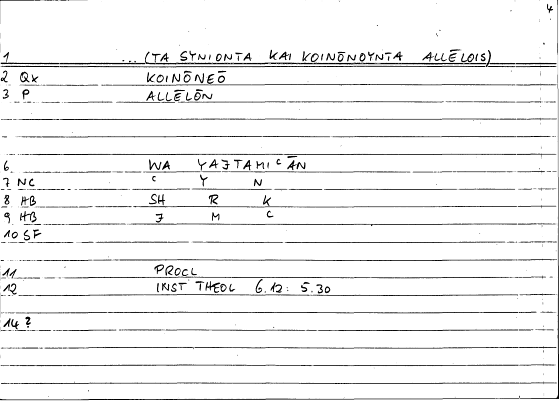 4
1 ... (TA SYNIONTA KAI KOINŌNOYNTA ALLĒLOIS)
2 Qx KOINŌNEŌ
3 P ALLĒLŌN
6 WA YAJTAMIᶜĀN
7 NC ᶜ Y N
8 HB SH R K
9 HB J M ᶜ
10 SF
11 PROCL
12 INST THEOL 6.12: 5.30
14 ?